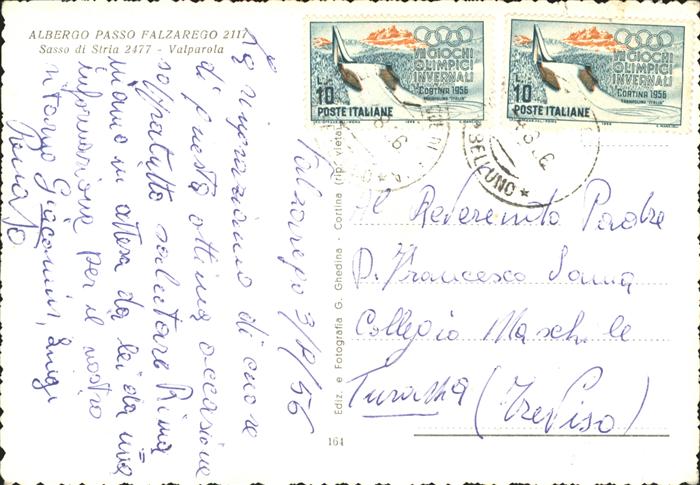 ALBERGO PASSO FALZAREGO 2117
Sasso di Stria 2477 - Valparola
Falzarego 3/8/56
La ringraziamo di cuore
di questa ottima occasione
sopratutto salutare Rima
niamo in attesa da lei da una
informazione per il nostro
ritorno Giacomini, Luigi
Renato
Ediz. e Fotografia G. Ghedina - Cortina (rip. vietata)
164
VII GIOCHI
OLIMPICI
INVERNALI
CORTINA 1956
TRAMPOLINO "ITALIA"
L. 10
POSTE ITALIANE
VII GIOCHI
OLIMPICI
INVERNALI
CORTINA 1956
TRAMPOLINO "ITALIA"
L. 10
POSTE ITALIANE
BELLUNO
Al Reverento Padre
P. Francesco
Collegio Maschile
(Treviso)